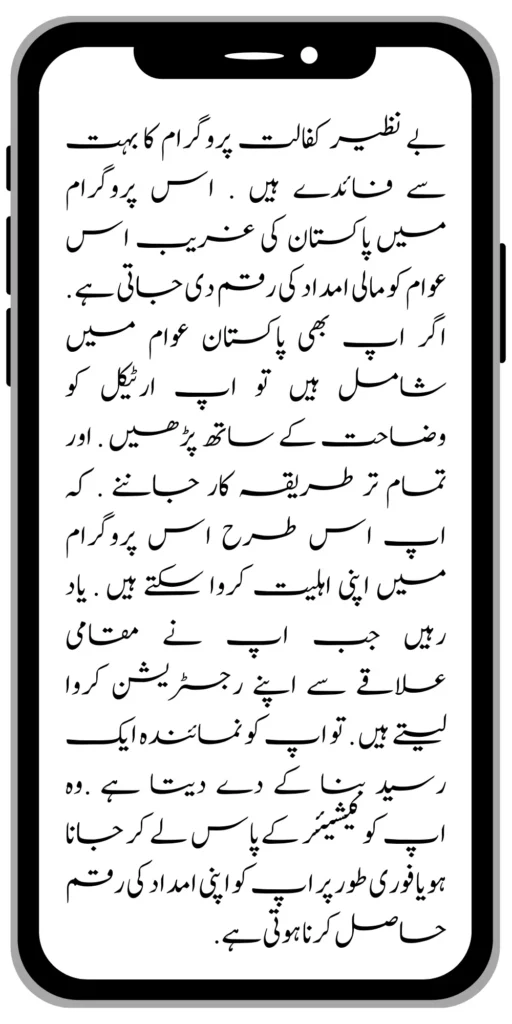 بے نظیر کفالت پروگرام کا بہت
سے فائدے ہیں . اس پروگرام
میں پاکستان کی غریب اس
عوام کو مالی امداد کی رقم دی جاتی ہے.
اگر اپ بھی پاکستان عوام میں
شامل ہیں تو اپ ارٹیکل کو
وضاحت کے ساتھ پڑھیں . اور
تمام تر طریقہ کار جاننے . کہ
اپ اس طرح اس پروگرام
میں اپنی اہلیت کروا سکتے ہیں . یاد
رہیں جب اپ نے مقامی
علاقے سے اپنے رجسٹریشن کروا
لیتے ہیں. تو اپ کو نمائندہ ایک
رسید بنا کے دے دیتا ہے .وہ
اپ کو کیشیئر کے پاس لے کر جانا
ہو یا فوری طور پر اپ کو اپنی امداد کی رقم
حاصل کرنا ہوتی ہے.